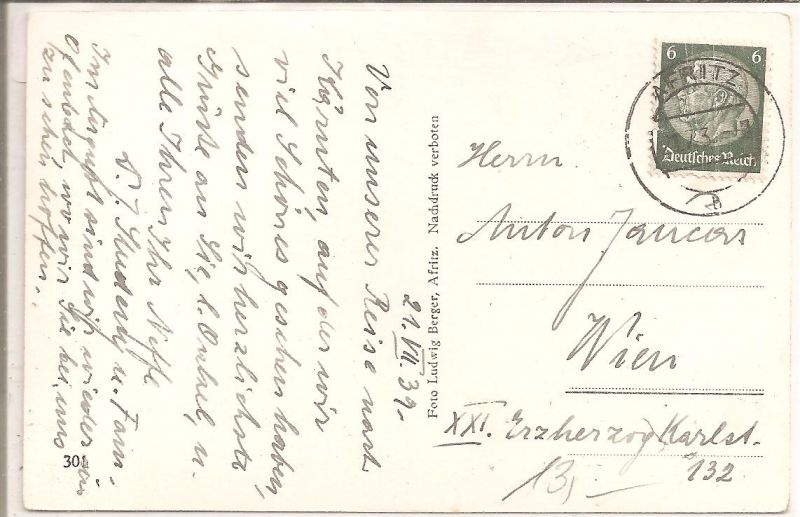 21.VII.39.
Von unserer Reise nach
Kärnten, auf der wir
viel Schönes gesehen haben,
senden wir herzlichste
Grüsse an Sie, l. Onkel, u.
alle Ihren Ihr Neffe
u. Fam.
Im August sind wir wieder in
wo wir Sie bei uns
zu sehen hoffen.
301
Foto Ludwig Berger, Afritz. Nachdruck verboten
6 6
Deutsches Reich
AFRITZ
Herrn
Anton
Wien
XXI. Erzherzog Karlst.
132
13,—